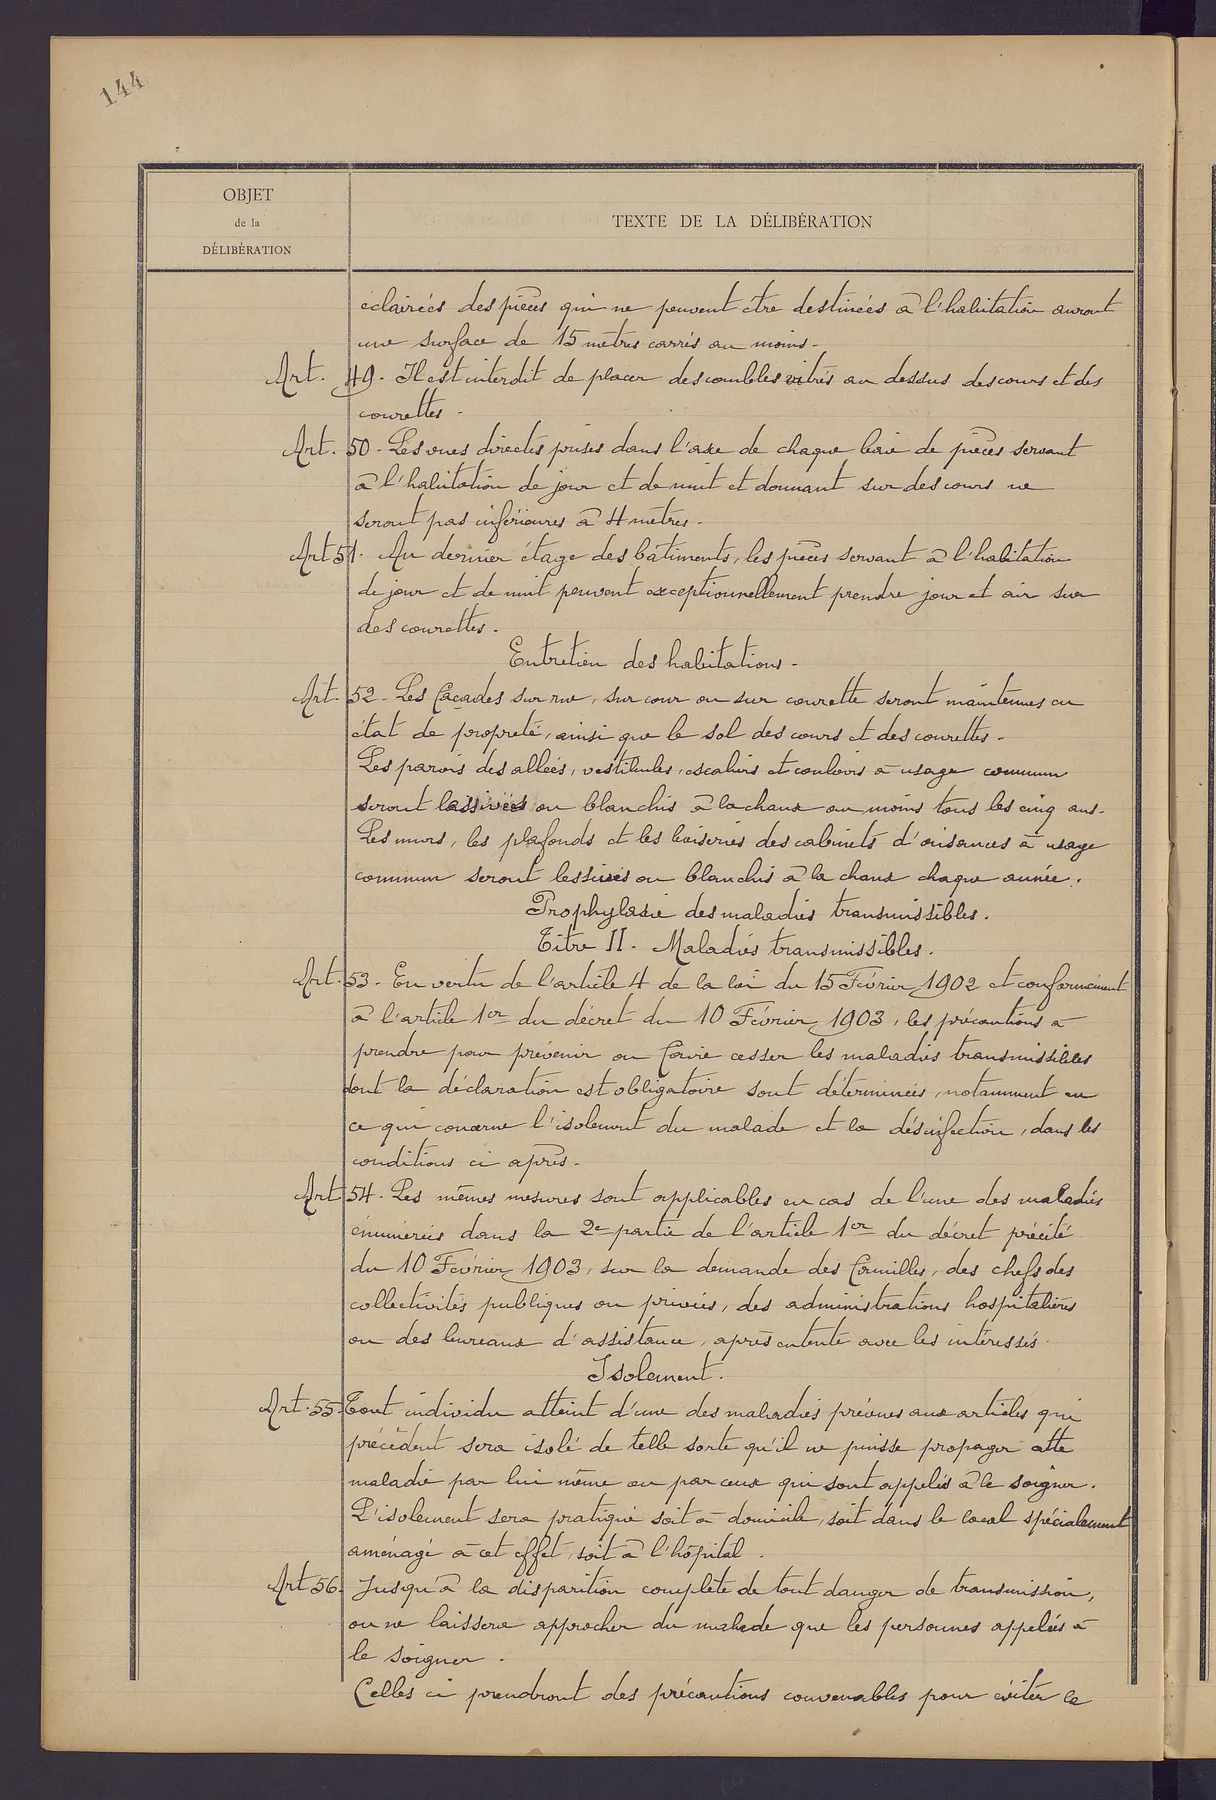 144
OBJET
de la
DÉLIBÉRATION
TEXTE DE LA DÉLIBÉRATION
éclairées des pièces qui ne peuvent être destinées à l'habitation auront
une surface de 15 mètres carrés au moins.
Art. 49. Il est interdit de placer des combles vitrés au dessus des cours et des
courettes.
Art. 50. Les vues directes prises dans l'axe de chaque baie de pièces servant
à l'habitation de jour et de nuit et donnant sur des cours ne
seront pas inférieures à 4 mètres.
Art 51. Au dernier étage des bâtiments, les pièces servant à l'habitation
de jour et de nuit peuvent exceptionnellement prendre jour et air sur
des courettes.
Entretien des habitations.
Art. 52. Les façades sur rue, sur cour ou sur courette seront maintenues en
état de propreté, ainsi que le sol des cours et des courettes.
Les parois des allées, vestibules, escaliers et couloirs à usage commun
seront lessivées ou blanchis à la chaux au moins tous les cinq ans.
Les murs, les plafonds et les boiseries des cabinets d'aisances à usage
commun seront lessivés ou blanchis à la chaux chaque année.
Prophylaxie des maladies transmissibles.
Titre II. Maladies transmissibles.
Art. 53. En vertu de l'article 4 de la loi du 15 Février 1902 et conformément
à l'article 1er du décret du 10 Février 1903, les précautions à
prendre pour prévenir ou faire cesser les maladies transmissibles
dont la déclaration est obligatoire sont déterminées, notamment en
ce qui concerne l'isolement du malade et la désinfection, dans les
conditions ci après.
Art 54. Les mêmes mesures sont applicables en cas de l'une des maladies
énumérées dans la 2e partie de l'article 1er du décret précité
du 10 Février 1903, sur la demande des familles, des chefs des
collectivités publiques ou privées, des administrations hospitalières
ou des bureaux d'assistance, après entente avec les intéressés.
Isolement.
Art. 55. Tout individu atteint d'une des maladies prévues aux articles qui
précèdent sera isolé de telle sorte qu'il ne puisse propager cette
maladie par lui même ou par ceux qui sont appelés à le soigner.
L'isolement sera pratiqué soit à domicile, soit dans le local spécialement
aménagé à cet effet, soit à l'hôpital.
Art 56. Jusqu'à la disparition complète de tout danger de transmission,
on ne laissera approcher du malade que les personnes appelées à
le soigner.
Celles ci prendront des précautions convenables pour éviter la